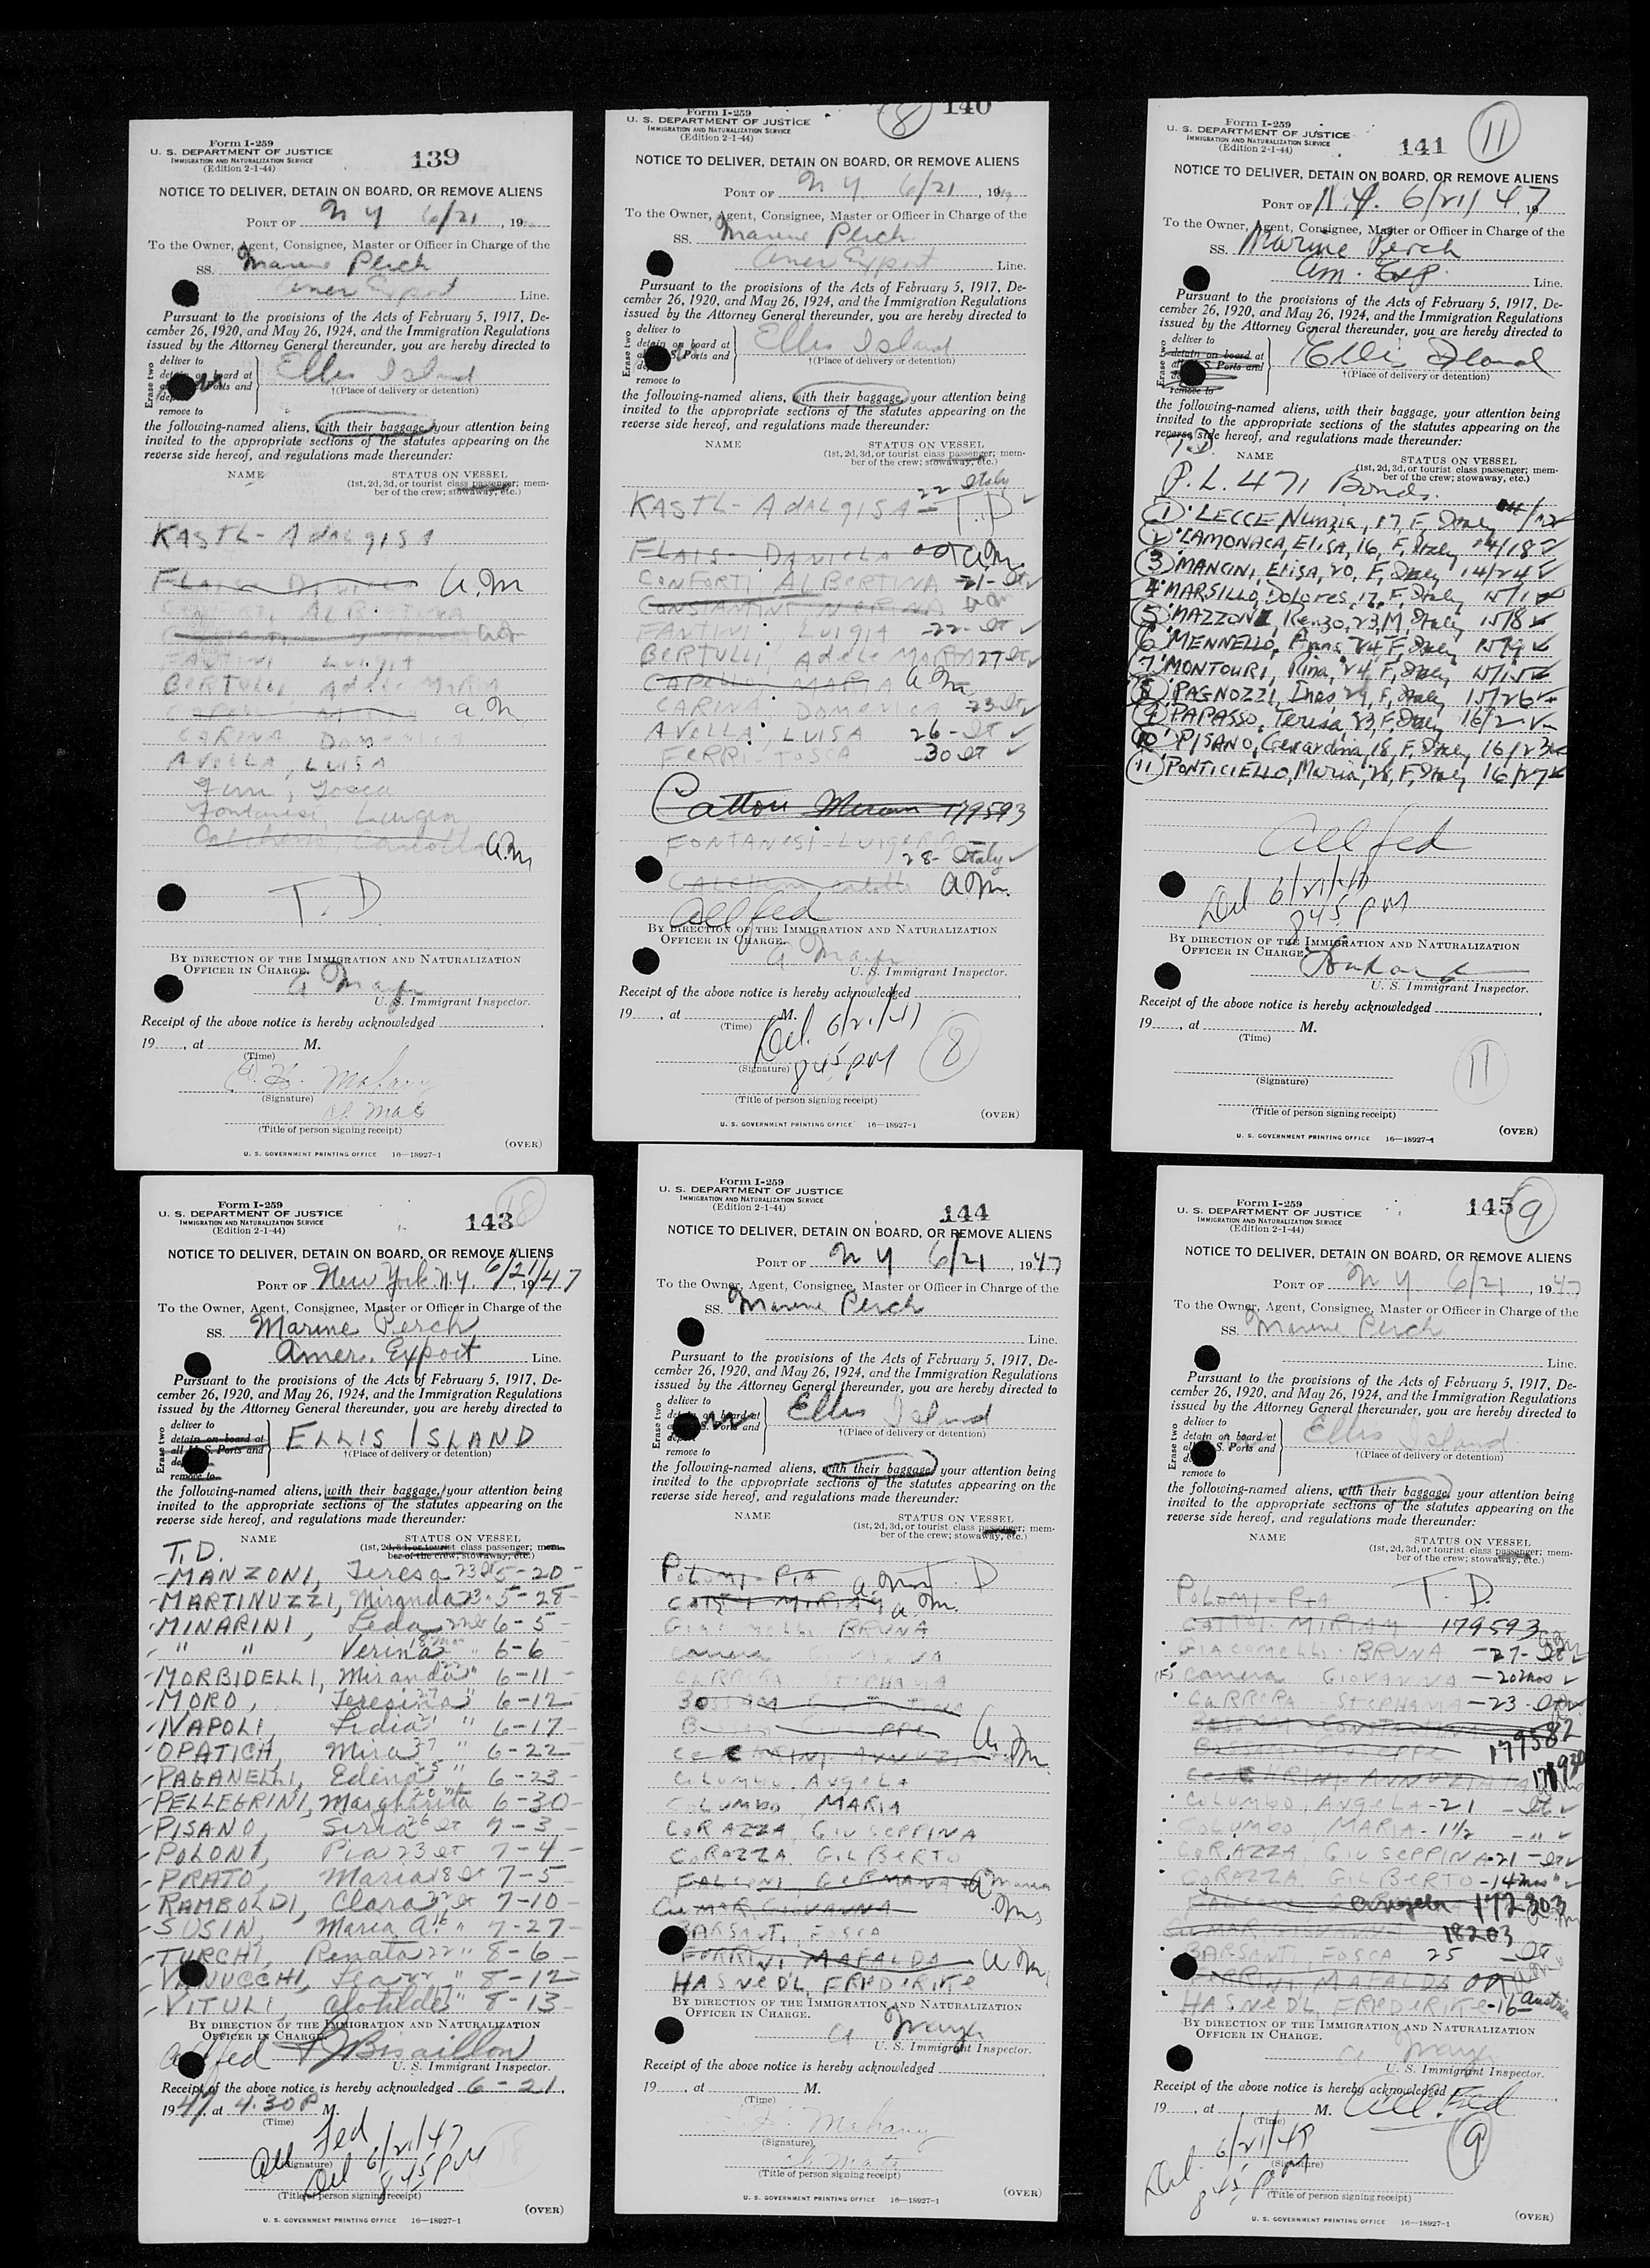 Form I-259
U. S. DEPARTMENT OF JUSTICE
IMMIGRATION AND NATURALIZATION SERVICE
(Edition 2-1-44)
139
NOTICE TO DELIVER, DETAIN ON BOARD, OR REMOVE ALIENS
PORT OF N Y 6/21, 19
To the Owner, Agent, Consignee, Master or Officer in Charge of the
SS. Marine Perch
Amer Export Line.
Pursuant to the provisions of the Acts of February 5, 1917, De-
cember 26, 1920, and May 26, 1924, and the Immigration Regulations
issued by the Attorney General thereunder, you are hereby directed to
Erase two
deliver to
detain on board at
Ports and
remove to
Ellis Island
†(Place of delivery or detention)
the following-named aliens, with their baggage, your attention being
invited to the appropriate sections of the statutes appearing on the
reverse side hereof, and regulations made thereunder:
NAME STATUS ON VESSEL
(1st, 2d, 3d, or tourist class passenger; mem-
ber of the crew; stowaway, etc.)
KASTL - ADALGISA
FLAIS - Daniela a.m
ALBERTINA
FANTINI LUIGIA
BERTULLI Adele MARIA
a m
CARINA Domenica
AVELLA, LUISA
Ferri, Tosca
Fontanesi, Luigia
a.m
T. D
BY DIRECTION OF THE IMMIGRATION AND NATURALIZATION
OFFICER IN CHARGE.
U. S. Immigrant Inspector.
Receipt of the above notice is hereby acknowledged
19, at M.
(Time)
(Signature)
(Title of person signing receipt)
(OVER)
U. S. GOVERNMENT PRINTING OFFICE 16—18927-1
Form I-259
U. S. DEPARTMENT OF JUSTICE
IMMIGRATION AND NATURALIZATION SERVICE
(Edition 2-1-44)
8 140
NOTICE TO DELIVER, DETAIN ON BOARD, OR REMOVE ALIENS
PORT OF N Y 6/21, 1947
To the Owner, Agent, Consignee, Master or Officer in Charge of the
SS. Marine Perch
Amer Export Line.
Pursuant to the provisions of the Acts of February 5, 1917, De-
cember 26, 1920, and May 26, 1924, and the Immigration Regulations
issued by the Attorney General thereunder, you are hereby directed to
Erase two
deliver to
detain on board at
S. Ports and
remove to
Ellis Island
†(Place of delivery or detention)
the following-named aliens, with their baggage, your attention being
invited to the appropriate sections of the statutes appearing on the
reverse side hereof, and regulations made thereunder:
NAME STATUS ON VESSEL
(1st, 2d, 3d, or tourist class passenger; mem-
ber of the crew; stowaway, etc.)
KASTL - ADALGISA - 22 Italy T. D
FLAIS - DANIELA a.m.
CONFORTI ALBERTINA -21- It
CONSTANTINI
FANTINI LUIGIA -22- It
BERTULLI Adele MARIA 27 It
CAPELLO MARIA a m
CARINA DOMENICA 23 It
AVELLA, LUISA 26 - It
FERRI - TOSCA 30 It
179593
FONTANESI - LUIGIA
28- Italy
a.m.
All fed
BY DIRECTION OF THE IMMIGRATION AND NATURALIZATION
OFFICER IN CHARGE.
U. S. Immigrant Inspector.
Receipt of the above notice is hereby acknowledged
19, at M.
(Time)
Del. 6/21/47
845 PM
8
(Signature)
(Title of person signing receipt)
(OVER)
U. S. GOVERNMENT PRINTING OFFICE 16—18927-1
Form I-259
U. S. DEPARTMENT OF JUSTICE
IMMIGRATION AND NATURALIZATION SERVICE
(Edition 2-1-44)
141 11
NOTICE TO DELIVER, DETAIN ON BOARD, OR REMOVE ALIENS
PORT OF N.Y. 6/21/47, 19
To the Owner, Agent, Consignee, Master or Officer in Charge of the
SS. Marine Perch
Am. Exp. Line.
Pursuant to the provisions of the Acts of February 5, 1917, De-
cember 26, 1920, and May 26, 1924, and the Immigration Regulations
issued by the Attorney General thereunder, you are hereby directed to
Erase two
deliver to
detain on board at
S. Ports and
remove to
Ellis Island
†(Place of delivery or detention)
the following-named aliens, with their baggage, your attention being
invited to the appropriate sections of the statutes appearing on the
reverse side hereof, and regulations made thereunder:
T.D.
NAME STATUS ON VESSEL
(1st, 2d, 3d, or tourist class passenger; mem-
ber of the crew; stowaway, etc.)
P. L. 471 Bonds.
1 LECCE, Nunzia, 17, F, Italy
2 LAMONACA, Elisa, 16, F, Italy 14/18
3 MANCINI, Elisa, 20, F, Italy 14/24
4 MARSILLO, Dolores, 17, F, Italy 15/1
5 MAZZONI, Renzo, 23, M, Italy 15/8
6 MENNELLO, Anna, 24, F, Italy 15/9
7 MONTOURI, Rina, 24, F, Italy 15/15
8 PAGNOZZI, Ines, 29, F, Italy 15/26
9 PAPASSO, Teresa, 33, F, Italy 16/2
10 PISANO, Gerardina, 18, F, Italy 16/23
11 PONTICIELLO, Maria, 28, F, Italy 16/27
All fed
Del 6/21/47
845 PM
BY DIRECTION OF THE IMMIGRATION AND NATURALIZATION
OFFICER IN CHARGE.
U. S. Immigrant Inspector.
Receipt of the above notice is hereby acknowledged
19, at M.
(Time)
11
(Signature)
(Title of person signing receipt)
(OVER)
U. S. GOVERNMENT PRINTING OFFICE 16—18927-1
Form I-259
U. S. DEPARTMENT OF JUSTICE
IMMIGRATION AND NATURALIZATION SERVICE
(Edition 2-1-44)
143 18
NOTICE TO DELIVER, DETAIN ON BOARD, OR REMOVE ALIENS
PORT OF New York, N.Y. 6/21/47 19
To the Owner, Agent, Consignee, Master or Officer in Charge of the
SS. Marine Perch
Amer. Export Line.
Pursuant to the provisions of the Acts of February 5, 1917, De-
cember 26, 1920, and May 26, 1924, and the Immigration Regulations
issued by the Attorney General thereunder, you are hereby directed to
Erase two
deliver to
detain on board at
all U. S. Ports and
remove to
ELLIS ISLAND
†(Place of delivery or detention)
the following-named aliens, with their baggage, your attention being
invited to the appropriate sections of the statutes appearing on the
reverse side hereof, and regulations made thereunder:
NAME STATUS ON VESSEL
(1st, 2d, 3d, or tourist class passenger; mem-
ber of the crew; stowaway, etc.)
T.D.
MANZONI, Teresa 23 It 5-20
MARTINUZZI, Miranda 23 " 5-28
MINARINI, Leda 22 It 6-5
" " Verina 18 mos " 6-6
MORBIDELLI, Miranda " 6-11
MORO, Teresina 27 " 6-12
NAPOLI, Lidia 21 " 6-17
OPATICH, Mira 37 " 6-22
PAGANELLI, Edena 25 " 6-23
PELLEGRINI, Margherita 20 It 6-30
PISANO, Siria 26 It 7-3
POLONI, Pia 23 It 7-4
PRATO, Maria 18 It 7-5
RAMBOLDI, Clara 32 It 7-10
SUSIN, Maria A. 16 " 7-27
TURCHI, Renata 22 " 8-6
VANUCCHI, Lea 22 " 8-12
VITULI, Clotilde " 8-13
BY DIRECTION OF THE IMMIGRATION AND NATURALIZATION
OFFICER IN CHARGE.
All fed Bisaillon
U. S. Immigrant Inspector.
Receipt of the above notice is hereby acknowledged 6-21,
1947, at 4:30 P M.
(Time)
All Fed
Del 6/21/47
845 PM
18
(Signature)
(Title of person signing receipt)
(OVER)
U. S. GOVERNMENT PRINTING OFFICE 16—18927-1
Form I-259
U. S. DEPARTMENT OF JUSTICE
IMMIGRATION AND NATURALIZATION SERVICE
(Edition 2-1-44)
144
NOTICE TO DELIVER, DETAIN ON BOARD, OR REMOVE ALIENS
PORT OF N Y 6/21, 1947
To the Owner, Agent, Consignee, Master or Officer in Charge of the
SS. Marine Perch
Line.
Pursuant to the provisions of the Acts of February 5, 1917, De-
cember 26, 1920, and May 26, 1924, and the Immigration Regulations
issued by the Attorney General thereunder, you are hereby directed to
Erase two
deliver to
detain on board at
S. Ports and
remove to
Ellis Island
†(Place of delivery or detention)
the following-named aliens, with their baggage, your attention being
invited to the appropriate sections of the statutes appearing on the
reverse side hereof, and regulations made thereunder:
NAME STATUS ON VESSEL
(1st, 2d, 3d, or tourist class passenger; mem-
ber of the crew; stowaway, etc.)
POLOMI - PIA a.m T. D
MIRIAM a.m.
Giacomelli BRUNA
Canera GIOVANNA
CARRERA STEPHANIA
a.m.
COLUMBO, ANGELA
COLUMBO, MARIA
CORAZZA, GIUSEPPINA
CORAZZA, GILBERTO
FALCONI, GERMANA
GIOVANNA
BARSANTI, FOSCA
FERRINI MAFALDA a.m
HASNEDL, FREDERIKE
BY DIRECTION OF THE IMMIGRATION AND NATURALIZATION
OFFICER IN CHARGE.
U. S. Immigrant Inspector.
Receipt of the above notice is hereby acknowledged
19, at M.
(Time)
(Signature)
(Title of person signing receipt)
(OVER)
U. S. GOVERNMENT PRINTING OFFICE 16—18927-1
Form I-259
U. S. DEPARTMENT OF JUSTICE
IMMIGRATION AND NATURALIZATION SERVICE
(Edition 2-1-44)
145 9
NOTICE TO DELIVER, DETAIN ON BOARD, OR REMOVE ALIENS
PORT OF N Y 6/21, 1947
To the Owner, Agent, Consignee, Master or Officer in Charge of the
SS. Marine Perch
Line.
Pursuant to the provisions of the Acts of February 5, 1917, De-
cember 26, 1920, and May 26, 1924, and the Immigration Regulations
issued by the Attorney General thereunder, you are hereby directed to
Erase two
deliver to
detain on board at
S. Ports and
remove to
Ellis Island
†(Place of delivery or detention)
the following-named aliens, with their baggage, your attention being
invited to the appropriate sections of the statutes appearing on the
reverse side hereof, and regulations made thereunder:
NAME STATUS ON VESSEL
(1st, 2d, 3d, or tourist class passenger; mem-
ber of the crew; stowaway, etc.)
POLOMI - PIA T. D.
MIRIAM 179593
GIACOMELLI BRUNA - 27 - It
Canera GIOVANNA - 20 mos
CARRERA STEPHANIA - 23 - It
179582
ANNUZIATA
COLUMBO, ANGELA - 21 - It
COLUMBO, MARIA - 1½ - "
CORAZZA, GIUSEPPINA - 21 - It
CORAZZA, GILBERTO - 14 mos "
Angela 172303
18203
BARSANTI, FOSCA 25 It
FERRINI MAFALDA
HASNEDL, FREDERIKE - 16 Austria
BY DIRECTION OF THE IMMIGRATION AND NATURALIZATION
OFFICER IN CHARGE.
U. S. Immigrant Inspector.
Receipt of the above notice is hereby acknowledged
19, at M.
(Time)
All Fed
Del. 6/21/47
845 PM
9
(Signature)
(Title of person signing receipt)
(OVER)
U. S. GOVERNMENT PRINTING OFFICE 16—18927-1